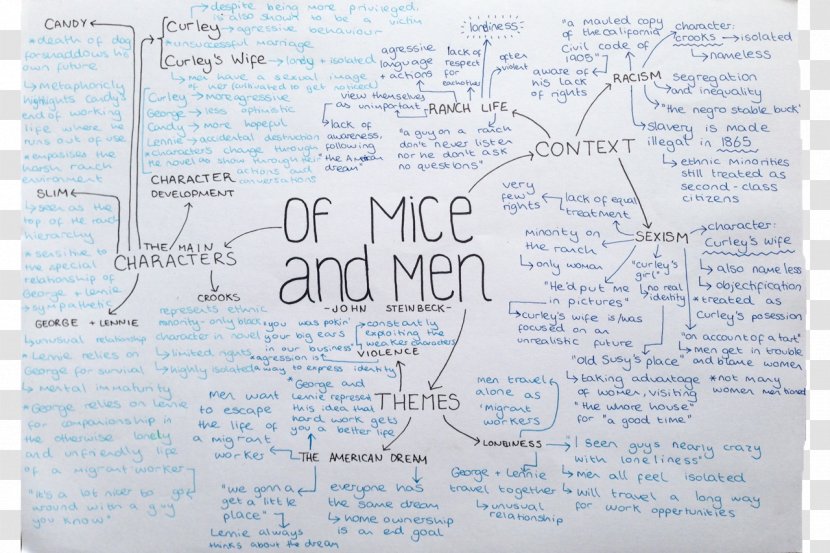 OF MICE
and Men
-JOHN STEINBECK-
CANDY
*death of dog
forshaddows his
own future
↳metaphoricly
highlights Candy's
end of working
life where he
runs out of use
*empasises the
harsh ranch
environment
SLIM
↳seen as the
top of the ranch
hierarchy
*sensitive to
the special
relationship of
George + Lennie
↳sympathetic
GEORGE + LENNIE
↳unusual relationship
*Lennie relies on
George for survival
↳mental immaturity
*George relies on Lennie
for companionship in
the otherwise lonely
and unfriendly life
of a migrant worker
"it's a lot nicer to go
around with a guy
you know"
despite being more privileged,
is also shown to be a victim
Curley → agressive behaviour
*unsuccessful marriage
Curley's Wife → lonely + isolated
↳men have a sexual image
of her (cultivated to get noticed)
Curley → more agressive
George → less optimistic
Candy → more hopeful
Lennie → accidental destruction
*characters change through
the novel as show through their
actions and
conversations
CHARACTER
DEVELOPMENT
THE MAIN
CHARACTERS
CROOKS
represents ethnic
minority - only black
character in novel
↳limited rights
↳highly isolated
loneliness
agressive
language
+ actions
lack of
respect
for
eachother
often
violent
view themselves
as unimportant
RANCH LIFE
↳lack of
awareness,
following
the American
dream"
"a guy on a ranch
don't never listen
nor he don't ask
no questions"
CONTEXT
"a mauled copy
of the California
Civil code of
1905"
aware of
his lack
of rights
RACISM
character:
crooks → isolated
↳nameless
segregation
and inequality
"the negro stable buck"
↳slavery is made
illegal in 1865
↳ethnic minorities
still treated as
second-class
citizens
very
few
rights
lack of equal
treatment
Minority on
the ranch
↳only woman
SEXISM
character:
Curley's wife
↳also nameless
↳objectification
*treated as
Curley's posession
"curley's
girl"
↳no real
identity
"He'd put me
in pictures"
↳curley's wife is/was
focused on an
unrealistic future
"on account of a tart"
↳men get in trouble
and blame women
*not many
women mentioned
"Old Susy's place"
↳taking advantage
of women, visiting
"the whore house"
for "a good time"
THEMES
VIOLENCE
"you was pokin'
your big ears
in our business"
→constantly
exploiting the
weaker characters
*agression is
a way to express identity
THE AMERICAN DREAM
men want
to escape
the life of
a migrant
worker
*George and
Lennie represent
this idea that
hard work gets
you a better life
"we gonna
get a little
place"
Lennie always
thinks about the dream
everyone has
the same dream
↳home ownership
is an end goal
LONLINESS
men travel
alone as
'migrant
workers'
George + Lennie
travel together
↳unusual
relationship
"I seen guys nearly crazy
with loneliness"
↳men all feel isolated
↳will travel a long way
for work opportunities